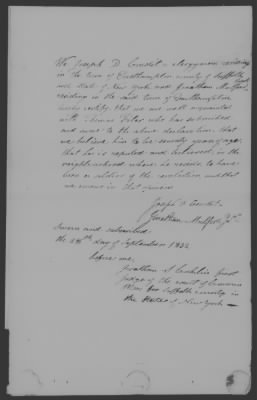 We Joseph D. Condit a clergyman residing
in the town of Easthampton county of Suffolk
and State of New York and Jonathan Mulford,
residing in the said town of Easthampton
hereby certify, that we are well acquainted
with who has subscribed
and sworn to the above declaration; that
we believe him to be seventy years of age,
that he is reputed and believed, in the
neighborhood where he resides to have
been a soldier of the revolution and that
we concur in that opinion
Joseph D Condit
Jonathan Mulford Jr.
Sworn and subscribed
the day of September 1832
before me,
Jonathan S Conklin first
judge of the court of Common
Pleas for Suffolk county in
the State of New York